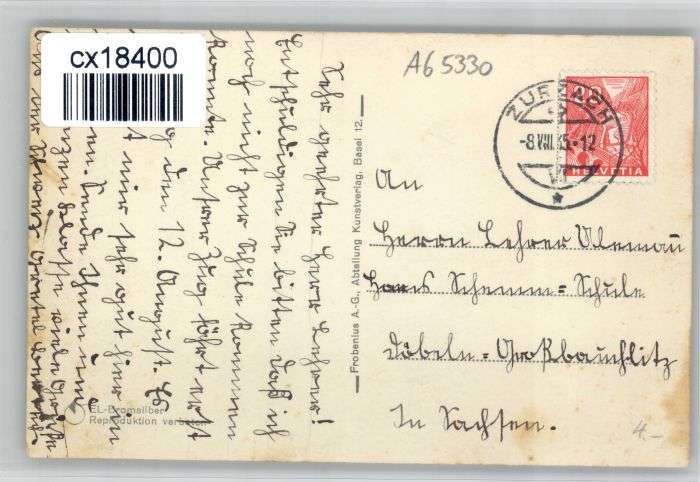 cx18400
A6 5330
ZURZACH
-8.VIII.35.-12
HELVETIA
Sehr geehrter Herr Lehrer!
Entschuldigen Sie bitten daß ich
noch nicht zur Schule kommen
konnte. Unser Zug fährt erst
den 12. August. Es
mir sehr gut hier in
Sende Ihnen und
Klasse viele Grüße
Frobenius A.-G., Abteilung Kunstverlag, Basel 12.
EL-Bromsilber
Reproduktion verboten
An
Herrn Lehrer Alemau
Hans Schemm-Schule
Döbeln-Großbauchlitz
In Sachsen.
4.-